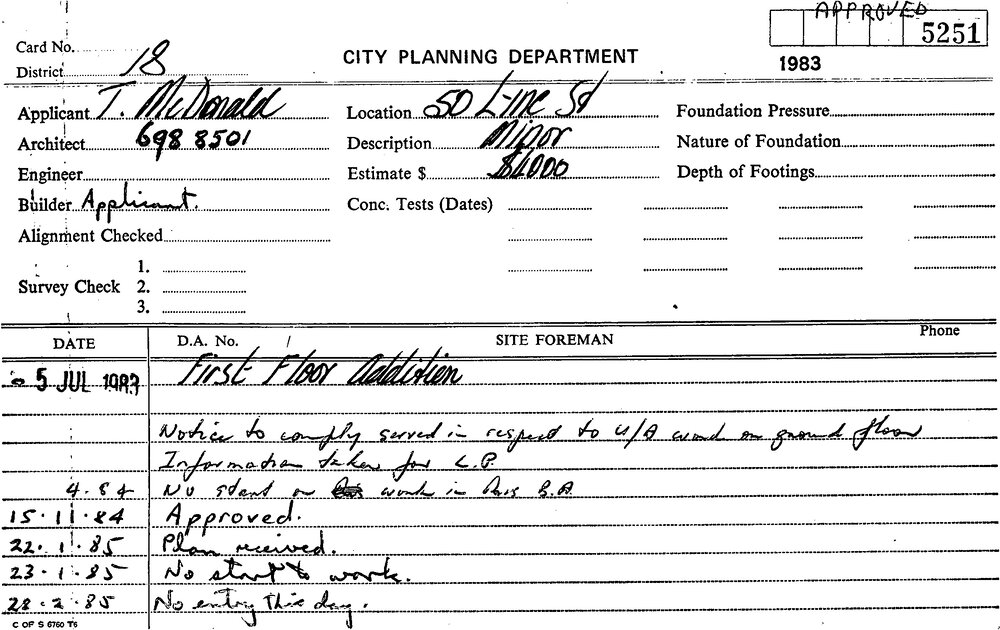 APPROVED
5251
1983
Card No.
District 18
CITY PLANNING DEPARTMENT
Applicant T. McDonald
Location 50 Line St
Foundation Pressure
Architect 698 8501
Description Minor
Nature of Foundation
Engineer
Estimate $ $4000
Depth of Footings
Builder Applicant.
Conc. Tests (Dates)
Alignment Checked
Survey Check
1.
2.
3.
DATE
D.A. No. /
SITE FOREMAN
Phone
5 JUL 1983 First Floor Addition
Notice to comply served in respect to U/A work on ground floor
Information taken for L.P.
4.84 No start on work in this B.A.
15.11.84 Approved.
22.1.85 Plan received.
23.1.85 No start to work.
28.2.85 No entry this day.
C OF S 6760 T6